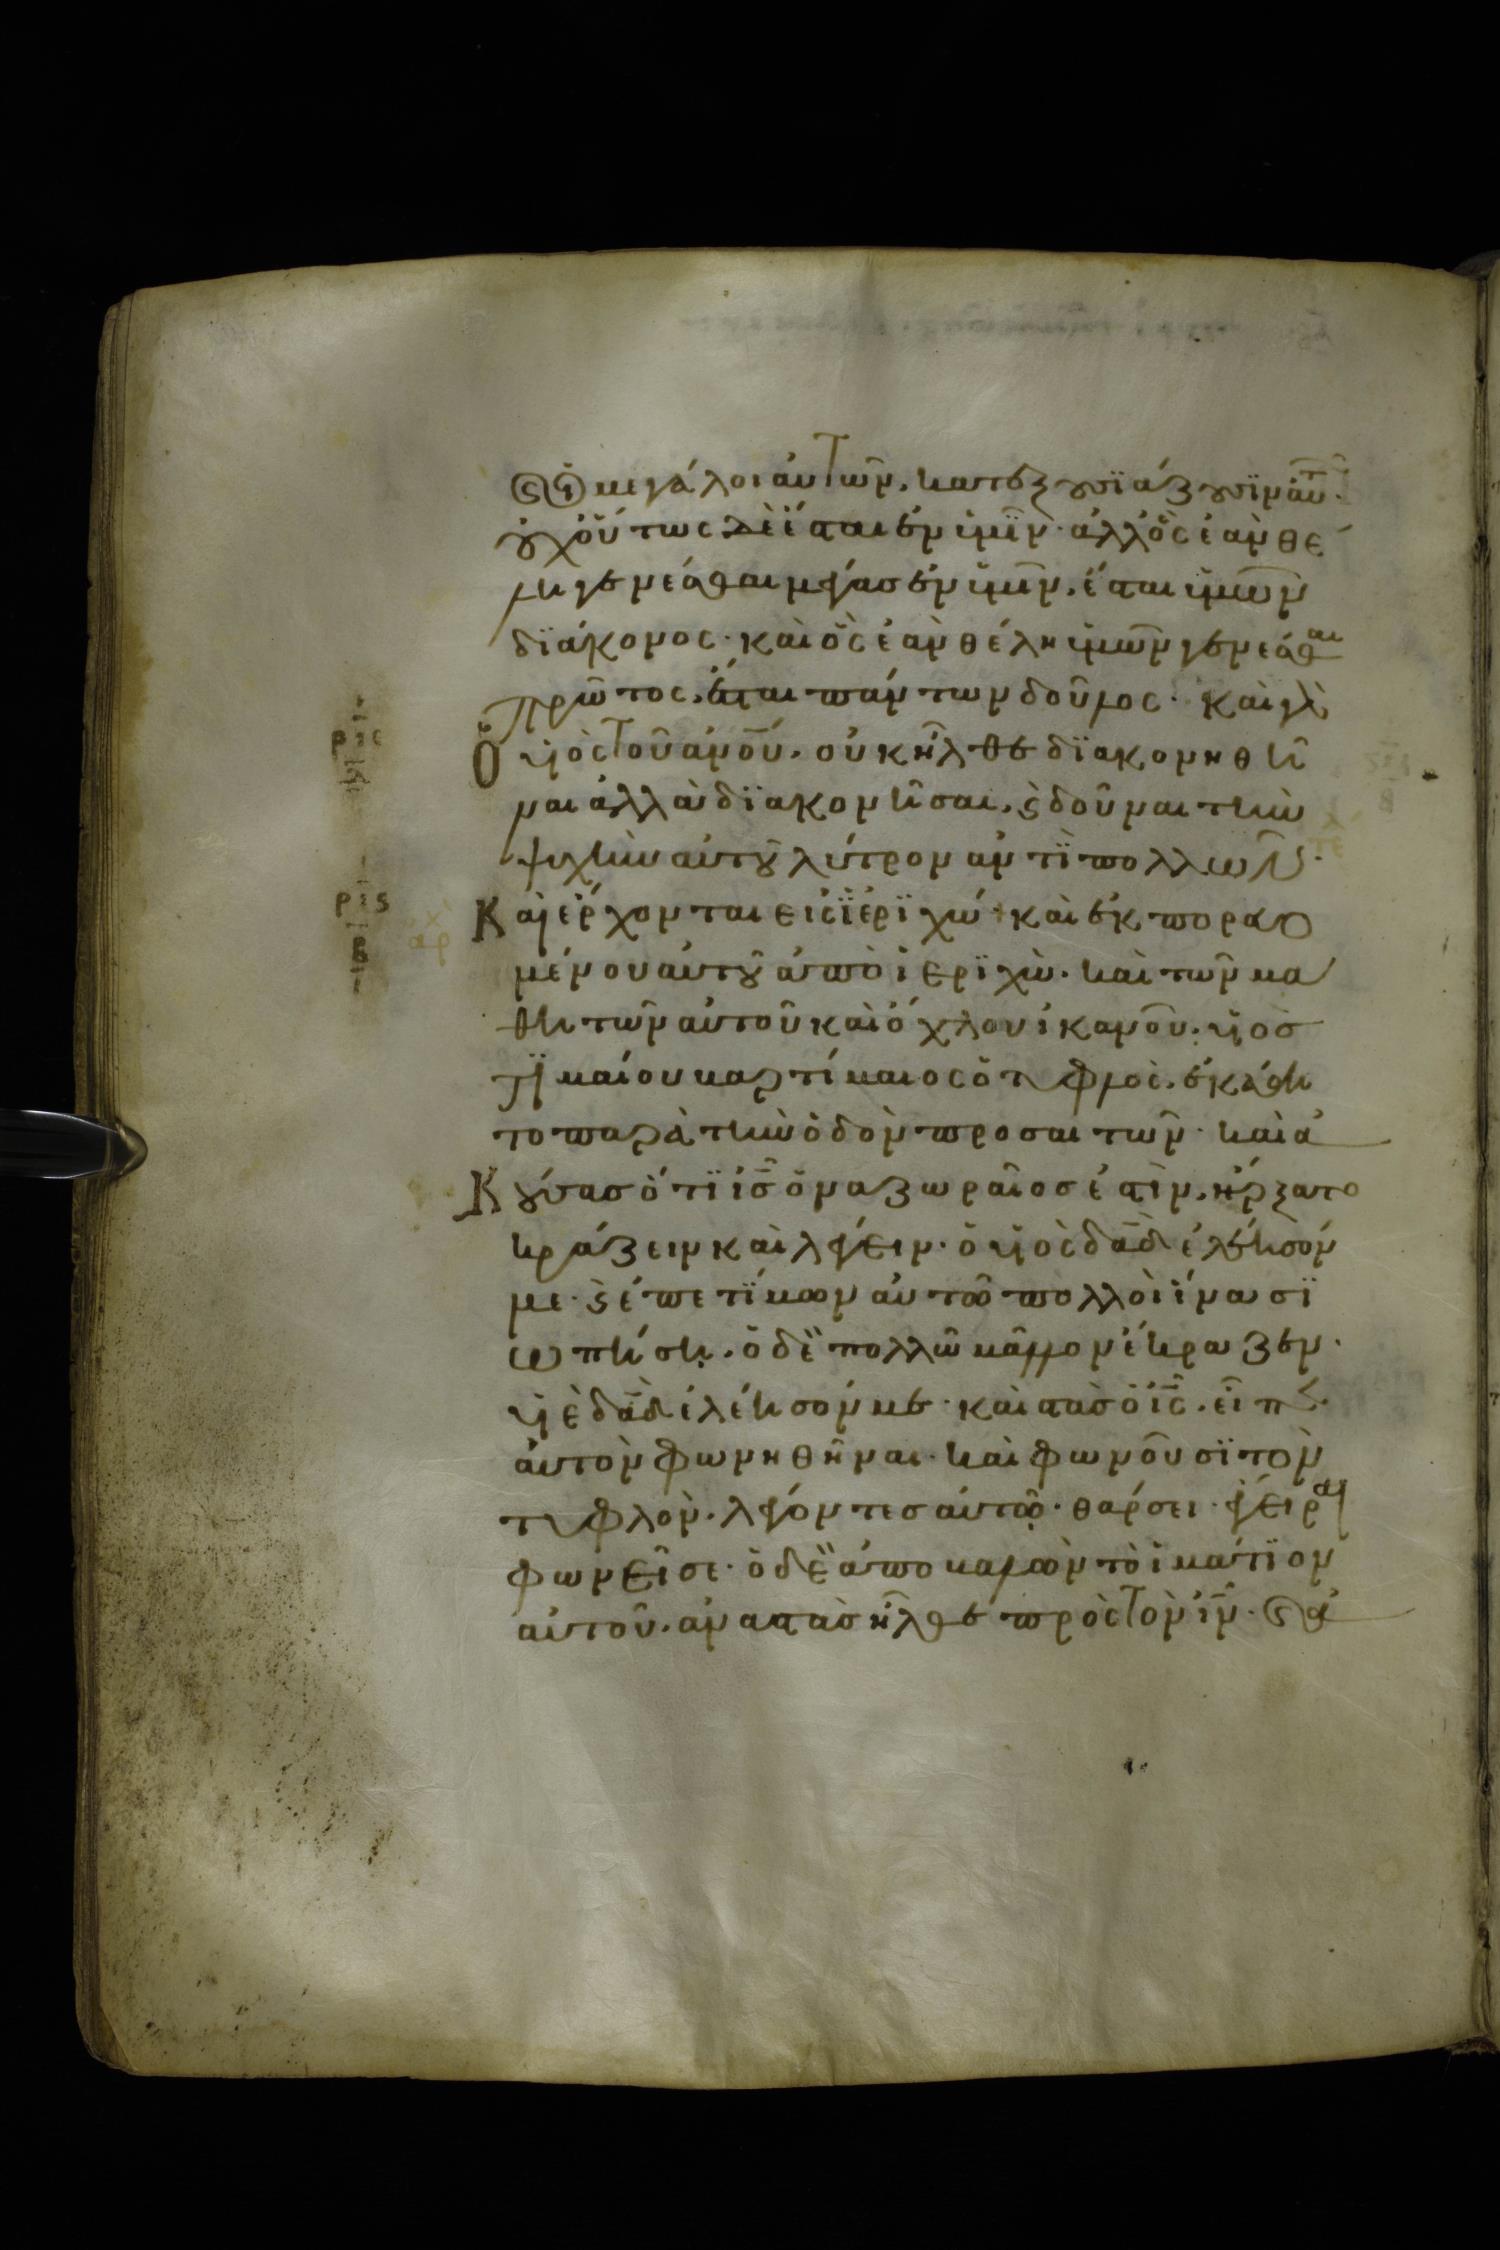 ϛ οἱ μεγάλοι αὐτῶν. κατεξουσϊάζουσϊν αὐτ(ῶν)·
οὐχ οὕτως δὲ ἔσται ἐν ὑμῖν· ἀλλ ὃς ἐὰν θέ
λη γενέσθαι μέγας ἐν ὑμῖν. ἔσται ὑμῶν
δϊάκονος· καὶ ὃς ἐὰν θέλη ὑμῶν γενέσθαι
πρῶτος. ἔσται πάντων δοῦλος· καὶ γὰρ
ὁ υἱὸς τοῦ ἀνου. οὐκ ἦλθε δϊακονηθῆ
ναι ἀλλὰ δϊακονῆσαι. ϛ δοῦναι τὴν
ψυχὴν αὐτοῦ λύτρον ἀντὶ πολλῶν·
ριϛ
β
Καὶ ἔρχονται εἰς ϊερϊχώ· καὶ ἐκπορευο
μένου αὐτοῦ ἀπὸ ἱερϊχὼ· καὶ τῶν μα
θητῶν αὐτοῦ καὶ ὄχλου ἱκανοῦ· υἱὸσ
τϊμαίου βαρτίμαιος ὁ τυφλὸς. ἐκάθη
το παρὰ τὴν ὁδὸν προσαιτῶν· καὶ ἀ
Κούσασ ὅτϊ ἰς ὁ ναζωραῖοσ ἐστὶν. ἤρξατο
κράζειν καὶ λέγειν· ὁ υἱὸς δαδ ἐλέησόν
με· ϛ ἐπετϊμων αὐτῶ πολλοὶ ἵνα σϊ
ωπήση. ὁ δὲ πολλῶ μᾶλλον ἔκραζεν·
υἱὲ δαδ ἐλέησόν με· καὶ στὰσ ὁ ἰς. εἶπ(εν)
αὐτὸν φωνηθῆναι· καὶ φωνοῦσϊ τὸν
τυφλὸν. λέγοντεσ αὐτῶ· θάρσει· ἔγειραι
φωνεῖ σε· ὁ δὲ ἀποβαλὼν τὸ ἱμάτϊον
αὐτοῦ. ἀναστὰσ ἦλθε πρὸς τὸν ἰν· ϛ ἀ